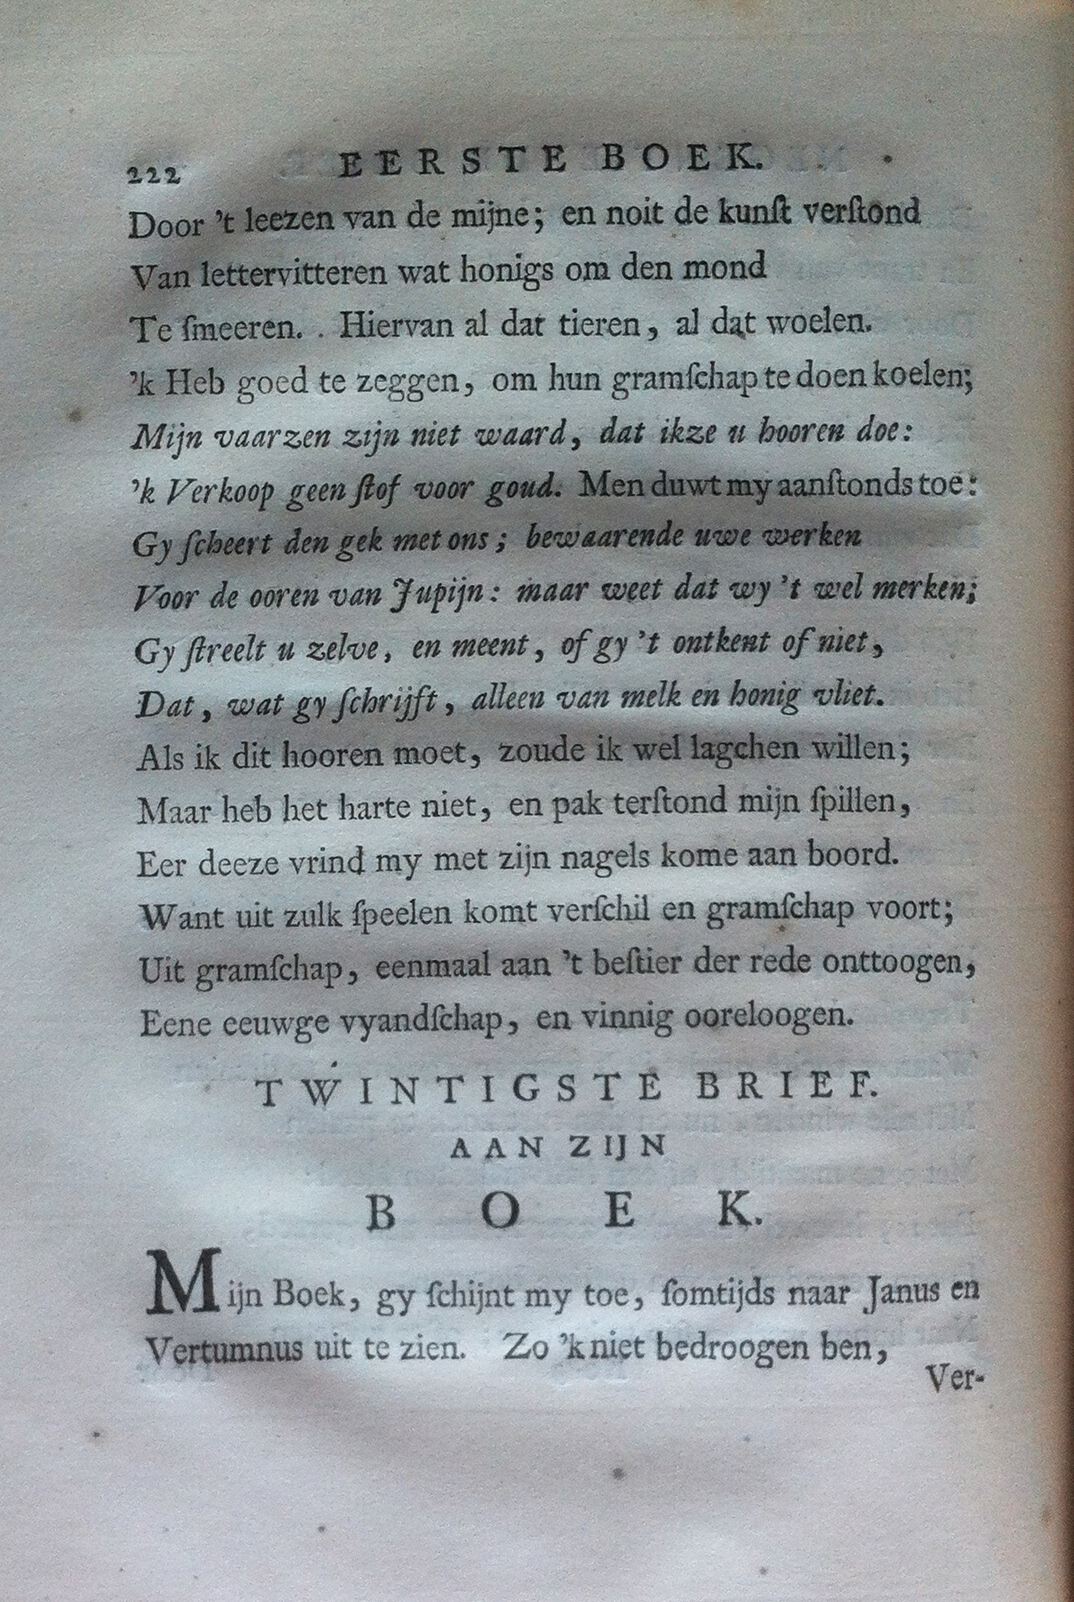 222 EERSTE BOEK.
Door 't leezen van de mijne; en noit de kunſt verſtond
Van lettervitteren wat honigs om den mond
Te ſmeeren. Hiervan al dat tieren, al dat woelen.
'k Heb goed te zeggen, om hun gramſchap te doen koelen;
Mijn vaarzen zijn niet waard, dat ikze u hooren doe:
'k Verkoop geen ſtof voor goud. Men duwt my aanſtonds toe:
Gy ſcheert den gek met ons; bewaarende uwe werken
Voor de ooren van Jupijn: maar weet dat wy 't wel merken;
Gy ſtreelt u zelve, en meent, of gy 't ontkent of niet,
Dat, wat gy ſchrijft, alleen van melk en honig vliet.
Als ik dit hooren moet, zoude ik wel lagchen willen;
Maar heb het harte niet, en pak terſtond mijn ſpillen,
Eer deeze vrind my met zijn nagels kome aan boord.
Want uit zulk ſpeelen komt verſchil en gramſchap voort;
Uit gramſchap, eenmaal aan 't beſtier der rede onttoogen,
Eene eeuwge vyandſchap, en vinnig ooreloogen.
TWINTIGSTE BRIEF.
AAN ZIJN
BOEK.
Mijn Boek, gy ſchijnt my toe, ſomtijds naar Janus en
Vertumnus uit te zien. Zo 'k niet bedroogen ben,
Ver-